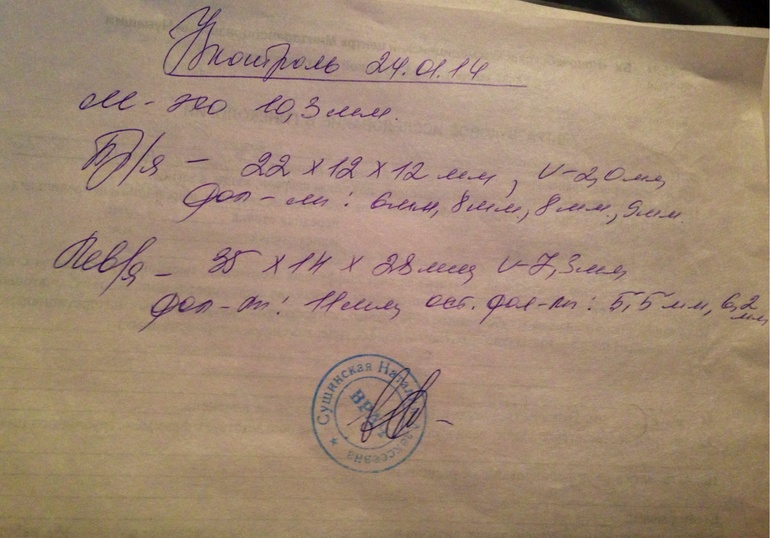 Узконтроль 24.01.14
М-эхо 10,3 мм.
Пр/я – 22 х 12 х 12 мм, V-2,0 мл
фол-лы: 6мм, 8мм, 8мм, 9мм.
Лев/я – 35 х 14 х 28 мм, V-7,3мл
фол-лы: 11мм, ост. фол-лы: 5,5 мм, 6,2 мм
Сушинская Наталья Алексеевна
ВРАЧ